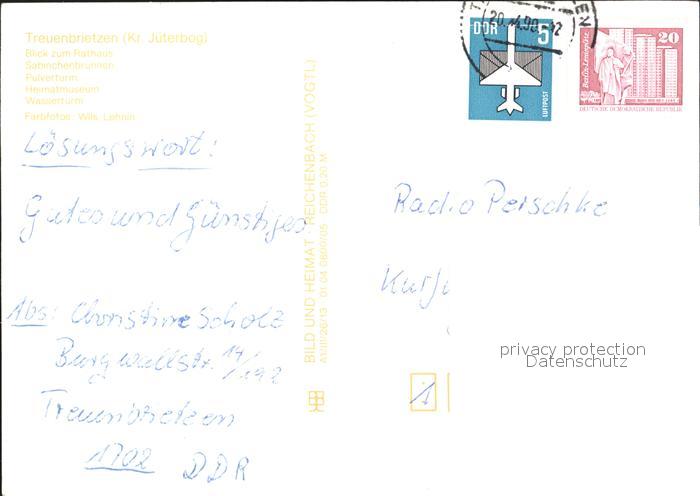 Treuenbrietzen (Kr. Jüterbog)
Blick zum Rathaus
Sabinchenbrunnen
Pulverturm
Heimatmuseum
Wasserturm
Farbfotos: Wils, Lehnin
Lösungswort:
Gutes und Günstiges
Abs: Christine Scholz
Burgwallstr. 14/
Treuenbrietzen
1702 DDR
BILD UND HEIMAT REICHENBACH (VOGTL)
A1/III/26/13 01 04 0600/05 DDR 0,20 M
20.4.90-12
EN
DDR 5
LUFTPOST
Berlin, Leninplatz
20
DEUTSCHE DEMOKRATISCHE REPUBLIK
Radio Perschke
Kurfü
privacy protection
Datenschutz
1